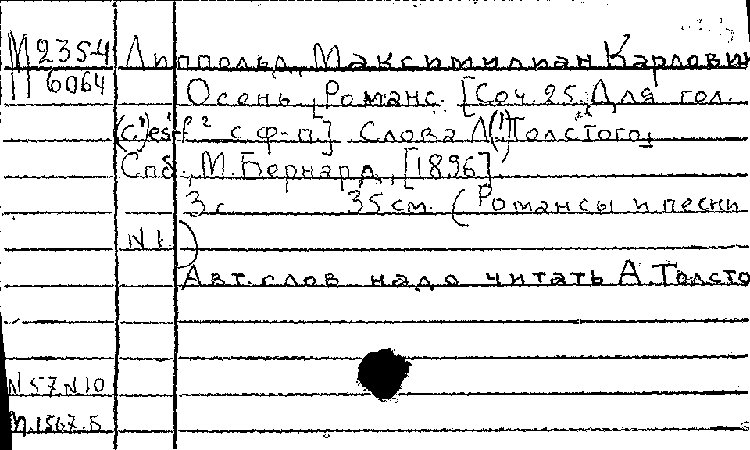 М 2354 Липпольд, Максимилиан Карлович
П 6064 Осень, Романс. [Соч. 25. Для гол.
(c') es'-f² с ф-п.] Слова Л(!)Толстого,
Спб., М. Бернард, [1896].
3 с. 35 см. (Романсы и песни
N 1.)
Авт. слов надо читать А. Толсто
N 57 N 10
М. 1567. Б